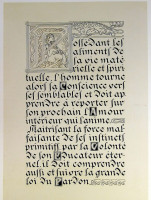 Possédant les
aliments de
sa vie maté
rielle et spiri
tuelle. l'homme tourne
alors sa Conscience vers
ses semblables et doit ap
prendre à reporter sur
son prochain l'Amour
intérieur qui l'anime.
Maîtrisant la force mal
faisante de ses instincts
primitifs par la Volonté
de son Educateur éter
nel. il doit comprendre
aussi et suivre la grande
loi du Pardon.